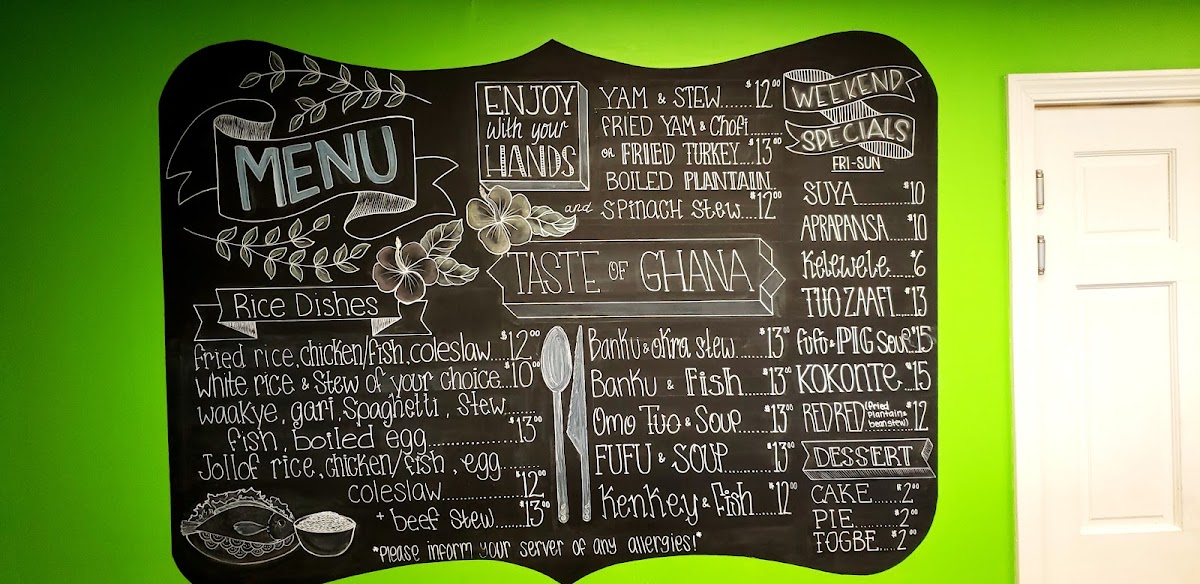 MENU
Rice Dishes
fried rice, chicken/fish, coleslaw....$12.00
White rice & stew of your choice...$10.00
waakye, gari, spaghetti, stew.......
fish, boiled egg..................$13.00
Jollof rice, chicken/fish, egg.......
coleslaw..............$12.00
+ beef stew.......$13.00
ENJOY
with your
HANDS
YAM & STEW.......$12.00
FRIED YAM & Chofi..........
or FRIED TURKEY....$13.00
BOILED PLANTAIN..
and SPINACH Stew...$12.00
TASTE OF GHANA
Banku & Okra stew......$13.00
Banku & Fish....$13.00
Omo Tuo & Soup....$13.00
FUFU & SOUP.........$13.00
Kenkey & Fish....$12.00
WEEKEND
SPECIALS
FRI-SUN
SUYA..........$10
APRAPANSA...$10
Kelewele.....$6
TUO ZAAFI..$13
fufu & PIG Soup $15
KOKONTE..$15
RED RED (fried plantain & bean stew) $12
DESSERT
CAKE......$2.00
PIE.........$2.00
TOGBE....$2.00
*Please inform your server of any allergies!*